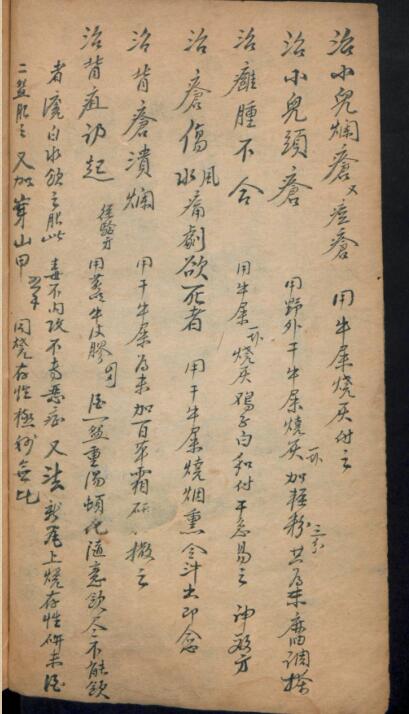 治小兒爛瘡又痘瘡 用牛屎燒灰付之
治小兒頭瘡 用野外干牛屎燒灰一不加輕粉三分共為末麻油調搽
治癰腫不合 用牛屎一不燒灰鴉子白和付干急易之 神效方
治瘡傷風水痛劇欲死者 用干牛屎燒烟熏令汁出即愈
治背瘡潰爛 用干牛屎為末加百草霜研、撒之
治背疽初起 經驗方 用黃牛皮膠 酒一盌重湯頓化隨意飲令不能飲
者滾白水飲之服此毒不內攻不傳惡症 又法 瓦上燒存性研末酒
二盌服之 又加穿山甲 同燒存性極妙無比